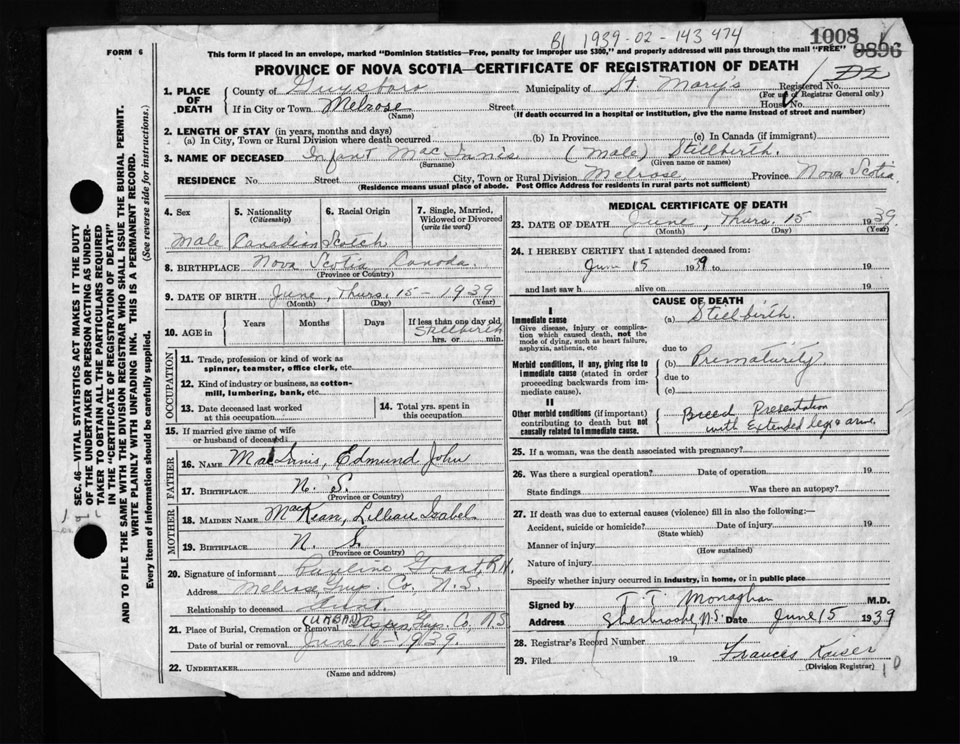 B1 1939-02-143474
1008
0896
FORM 6
This form if placed in an envelope, marked "Dominion Statistics—Free, penalty for improper use $300," and properly addressed will pass through the mail "FREE"
PROVINCE OF NOVA SCOTIA—CERTIFICATE OF REGISTRATION OF DEATH
1. PLACE OF DEATH
County of Guysboro Municipality of St. Mary's Registered No.
(For use of Registrar General only)
If in City or Town Melrose Street House No.
(Name) (If death occurred in a hospital or institution, give the name instead of street and number)
2. LENGTH OF STAY (in years, months and days)
(a) In City, Town or Rural Division where death occurred (b) In Province (c) In Canada (if immigrant)
3. NAME OF DECEASED Infant MacInnis (Male) Stillbirth.
(Surname) (Given name or names)
RESIDENCE No. Street City, Town or Rural Division Melrose, Province Nova Scotia
(Residence means usual place of abode. Post Office Address for residents in rural parts not sufficient)
4. Sex
5. Nationality (Citizenship)
6. Racial Origin
7. Single, Married, Widowed or Divorced (write the word)
Male Canadian Scotch
8. BIRTHPLACE Nova Scotia Canada.
(Province or Country)
9. DATE OF BIRTH June, Thurs. 15 - 1939
(Month) (Day) (Year)
10. AGE in Years Months Days If less than one day old
Stillbirth
hrs. or min.
OCCUPATION
11. Trade, profession or kind of work as spinner, teamster, office clerk, etc.
12. Kind of industry or business, as cotton-mill, lumbering, bank, etc.
13. Date deceased last worked at this occupation
14. Total yrs. spent in this occupation
15. If married give name of wife or husband of deceased
FATHER
16. NAME MacInnis, Edmund John
17. BIRTHPLACE N. S.
(Province or Country)
MOTHER
18. MAIDEN NAME MacKean, Lillian Isabel
19. BIRTHPLACE N. S.
(Province or Country)
20. Signature of informant Pauline Grant, R.N.
Address Melrose, Guy. Co., N.S.
Relationship to deceased Aunt.
21. Place of Burial, Cremation or Removal Aspen, Guy. Co., N.S
Date of burial or removal June 16 - 1939.
22. UNDERTAKER
(Name and address)
MEDICAL CERTIFICATE OF DEATH
23. DATE OF DEATH June, Thurs. 15 1939
(Month) (Day) (Year)
24. I HEREBY CERTIFY that I attended deceased from:
June 15 1939 to 19
and last saw h alive on 19
CAUSE OF DEATH
I
Immediate cause
Give disease, injury or complication which caused death, not the mode of dying, such as heart failure, asphyxia, asthenia, etc
(a) Stillbirth.
due to
Morbid conditions, if any, giving rise to immediate cause (stated in order proceeding backwards from immediate cause).
(b) Prematurity
due to
(c)
II
Other morbid conditions (if important) contributing to death but not causally related to immediate cause.
Breed Presentation
with Extended legs & arms.
25. If a woman, was the death associated with pregnancy?
26. Was there a surgical operation? Date of operation 19
State findings Was there an autopsy?
27. If death was due to external causes (violence) fill in also the following:—
Accident, suicide or homicide? Date of injury 19
(State which)
Manner of injury
(How sustained)
Nature of injury
Specify whether injury occurred in industry, in home, or in public place
Signed by T. T. Monaghan M.D.
Address Sherbrooke, N.S. Date June 15 1939
28. Registrar's Record Number
29. Filed 19 Frances Kaiser
(Division Registrar)
SEC. 46—VITAL STATISTICS ACT MAKES IT THE DUTY
OF THE UNDERTAKER OR PERSON ACTING AS UNDERTAKER TO OBTAIN ALL THE PARTICULARS REQUIRED
IN THE "CERTIFICATE OF REGISTRATION OF DEATH"
AND TO FILE THE SAME WITH THE DIVISION REGISTRAR WHO SHALL ISSUE THE BURIAL PERMIT.
WRITE PLAINLY WITH UNFADING INK. THIS IS A PERMANENT RECORD.
Every item of information should be carefully supplied. (See reverse side for instructions.)